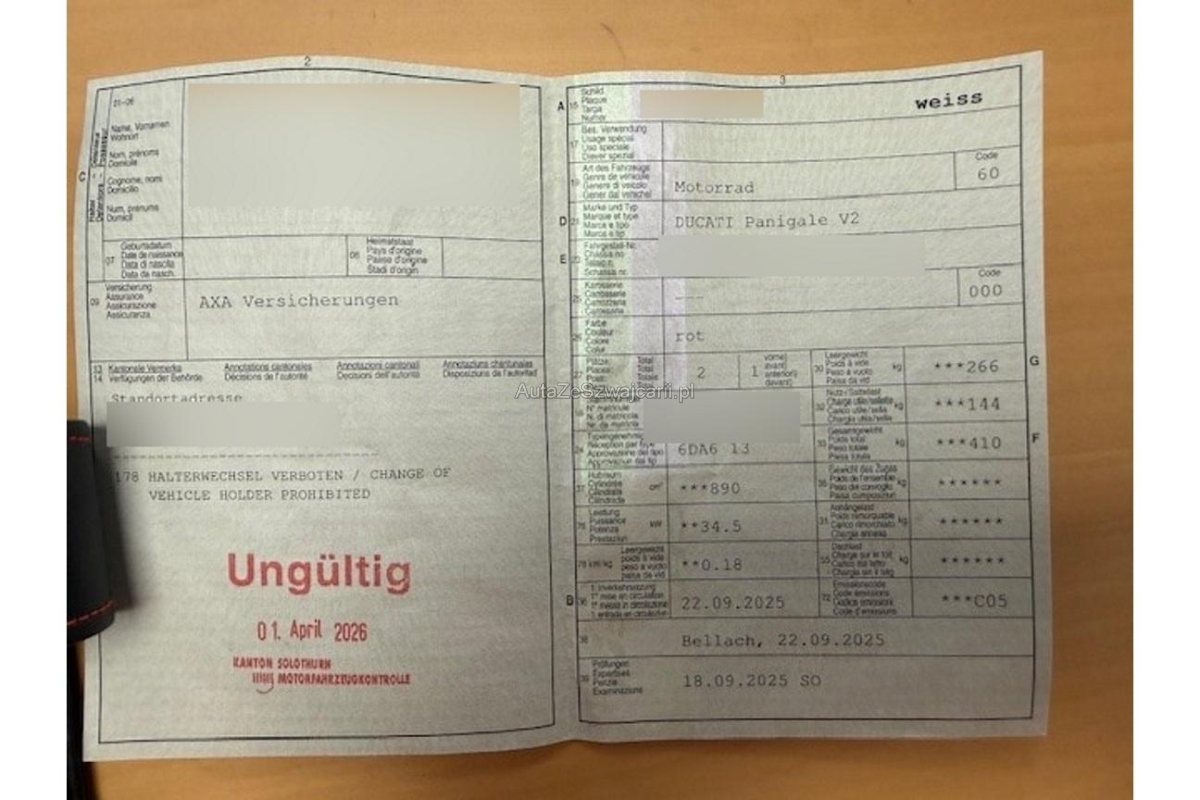 2
01-06
Name, Vornamen
Wohnort
Nom, prénoms
Domicile
C
Cognome, nomi
Domicilio
Num, prenums
Domicil
07
Geburtsdatum
Date de naissance
Data di nascita
Data da nasch.
08
Heimatstaat
Pays d'origine
Paese d'origine
Stadi d'origin
09
Versicherung
Assurance
Assicurazione
Assicuranza
AXA Versicherungen
13
14
Kantonale Vermerke
Verfügungen der Behörde
Annotations cantonales
Décisions de l'autorité
Annotazioni cantonali
Decisioni dell'autorità
Annotaziuns chantunalas
Disposiziuns da l'autoritad
Standortadresse
178 HALTERWECHSEL VERBOTEN / CHANGE OF
VEHICLE HOLDER PROHIBITED
Ungültig
01. April 2026
KANTON SOLOTHURN
MOTORFAHRZEUGKONTROLLE
3
A
15
Schild
Plaque
Targa
Numer
weiss
17
Bes. Verwendung
Usage spécial
Uso speciale
Diever spezial
19
Art des Fahrzeugs
Genre de véhicule
Genere di veicolo
Gener dal vehichel
Motorrad
Code
60
D
21
Marke und Typ
Marque et type
Marca e tipo
Marca e tip
DUCATI Panigale V2
E
23
Fahrgestell-Nr.
Châssis no
Telaio n.
Schassis nr.
25
Karosserie
Carrosserie
Carrozzeria
Carossaria
---
Code
000
26
Farbe
Couleur
Colore
Colur
rot
27
Plätze
Places
Posti
Total
Total
Totale
Total
2
1
vorne
avant
anteriori
davant
30
Leergewicht
Poids à vide
Peso a vuoto
Paisa da vid
kg
***266
G
AutaZeSzwajcarii.pl
18
Stammnummer
N° matricule
N. di matricola
Nr. da matricla
32
Nutz-/Sattellast
Charge utile/sellette
Carico utile/sella
Chargia utila/sella
kg
***144
24
Typengenehmig.
Réception par type
Approvazione del tipo
Approvaziun dal tip
6DA6 13
33
Gesamtgewicht
Poids total
Peso totale
Paisa totala
kg
***410
F
37
Hubraum
Cylindrée
Cilindrata
Cilindrada
cm³
***890
35
Gewicht des Zuges
Poids de l'ensemble
Peso del convoglio
Paisa cumposiziun
kg
******
76
Leistung
Puissance
Potenza
Prestaziun
kW
**34.5
31
Anhängelast
Poids remorquable
Carico rimorchiato
Chargia annexa
kg
******
78 kW/kg
Leergewicht
poids à vide
peso a vuoto
paisa da vid
**0.18
55
Dachlast
Charge sur le toit
Carico sul tetto
Chargia sin il tetg
kg
******
B
36
1. Inverkehrsetzung
1re mise en circulation
1a messa in circolazione
1. entrada en circulaziun
22.09.2025
72
Emissionscode
Code émissions
Codice emissioni
Code d'emissiuns
***C05
38
Bellach, 22.09.2025
39
Prüfungen
Expertises
Perizie
Examinaziuns
18.09.2025 SO